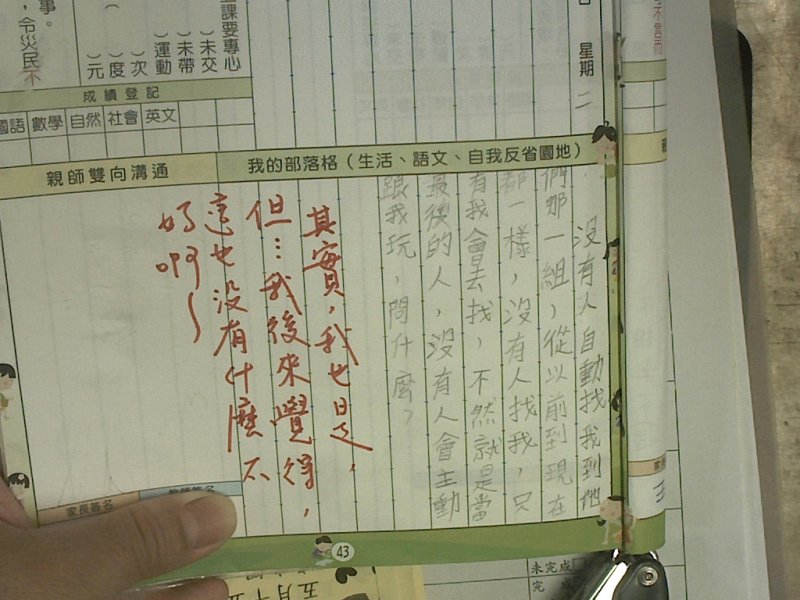 事。
，令災民不
上課要專心
（ ）未交
（ ）未帶
（ ）運動
（ ）次
（ ）度
（ ）元
星期二
成績登記
國語 數學 自然 社會 英文
親師雙向溝通
我的部落格（生活、語文、自我反省園地）
沒有人自動找我到他
們那一組，從以前到現在
都一樣，沒有人找我，只
有我會去找，不然就是當
最後的人，沒有人會主動
跟我玩，問什麼？
其實，我也是，
但…我後來覺得，
這也沒有什麼不
好啊～
家長簽名
43
未完成
完
五月十五